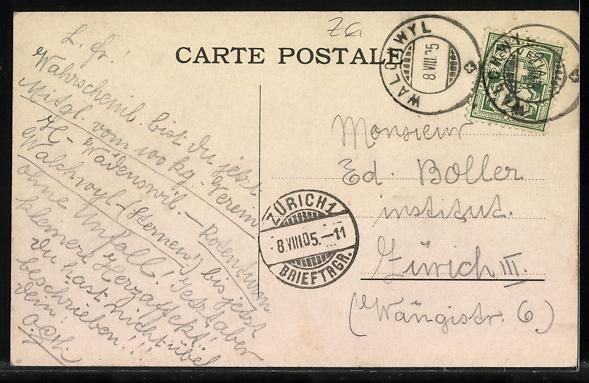 Za
CARTE POSTALE
WALCHWYL
8.VIII.05
WALCHWYL
L. Fr.!
Wahrscheinl. bist Du jetzt
Mitgl. vom 100 kg. Verein
H - Wädenswil. - Rothenthurm
Walchwyl - (Sternen!) bis jetzt
ohne Unfall! Jedoch aber
kleinere Herzaffekt!
Du hast nicht übel
beschrieben!!!
Dein
Monsieur
Ed. Boller
institut.
Zürich III.
(Wängistr. 6.)
ZÜRICH 1
8.VIII.05.-11
BRIEFTRGR.